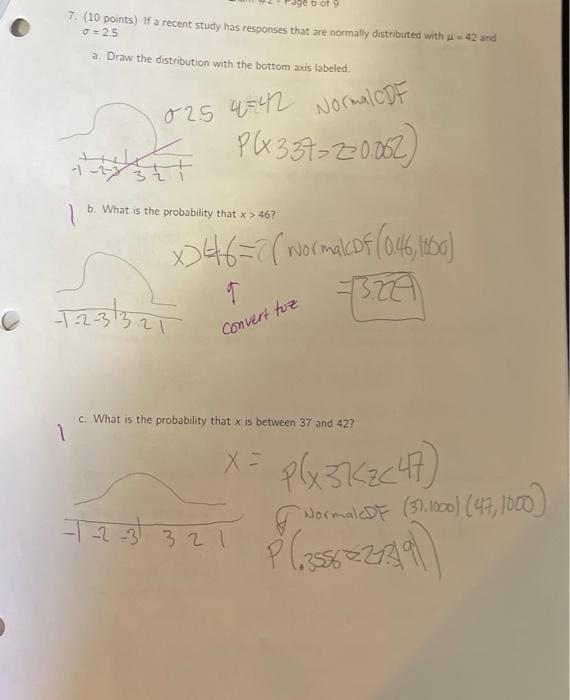 Page 6 of 9
7. (10 points) If a recent study has responses that are normally distributed with μ = 42 and
σ = 2.5
a. Draw the distribution with the bottom axis labeled.
σ 25 μ=42 NormalCDF
-1 -2 -3 3 2 1
1 b. What is the probability that x > 46?
x>46= NormalCDF(0.46,1000)
= 3.229
convert to z
-1 -2 -3 3 2 1
c. What is the probability that x is between 37 and 42?
1
x = P(x37<z<47)
NormalCDF (37,1000) (47,1000)
-1 -2 -3 3 2 1